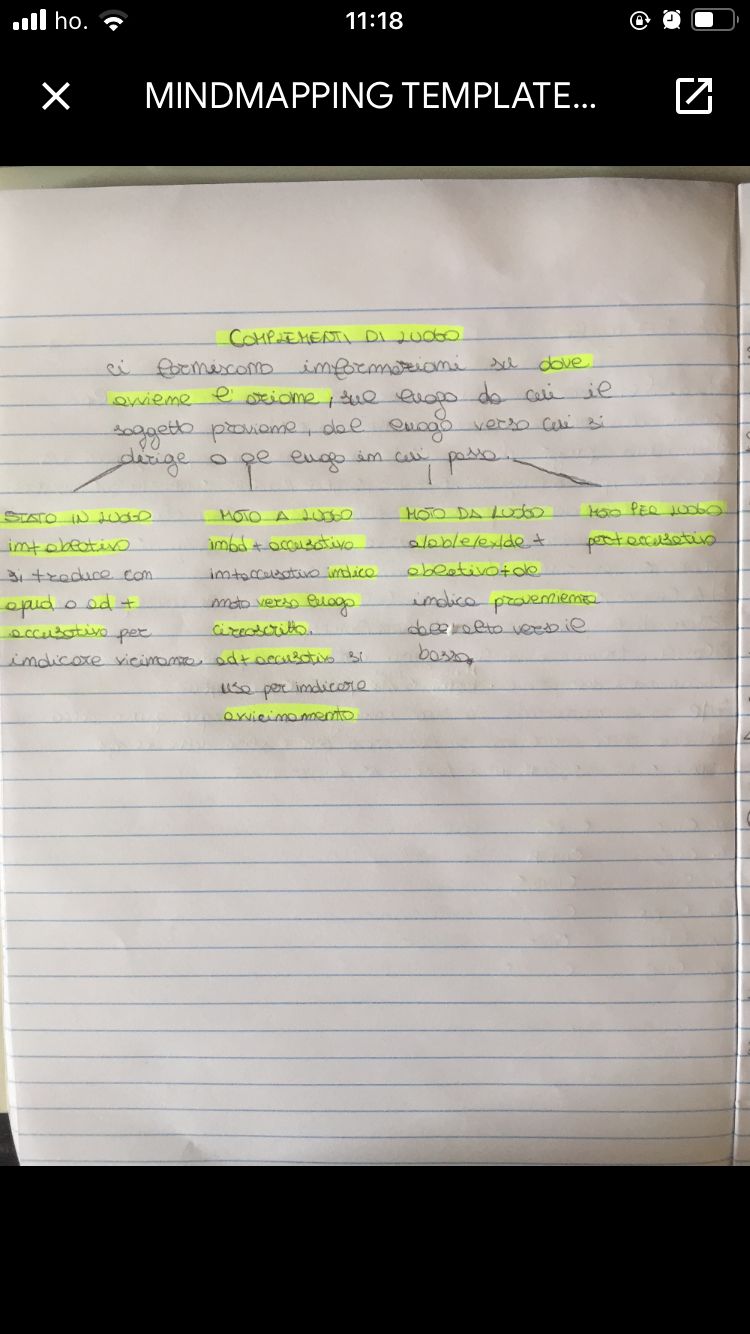 ho.
11:18
MINDMAPPING TEMPLATE...
COMPLEMENTI DI LUOGO
ci forniscono informazioni su dove
avviene l'azione, sul luogo da cui il
soggetto proviene, dal luogo verso cui si
dirige o per luogo in cui passa.
STATO IN LUOGO
in+ablativo
si traduce con
apud o ad +
accusativo per
indicare vicinanza.
MOTO A LUOGO
in/ad + accusativo
in+accusativo indica
moto verso luogo
circoscritto.
ad+accusativo si
usa per indicare
avvicinamento
MOTO DA LUOGO
a/ab/e/ex/de +
ablativo+de
indica provenienza
dall'alto verso il
basso.
MOTO PER LUOGO
per+accusativo